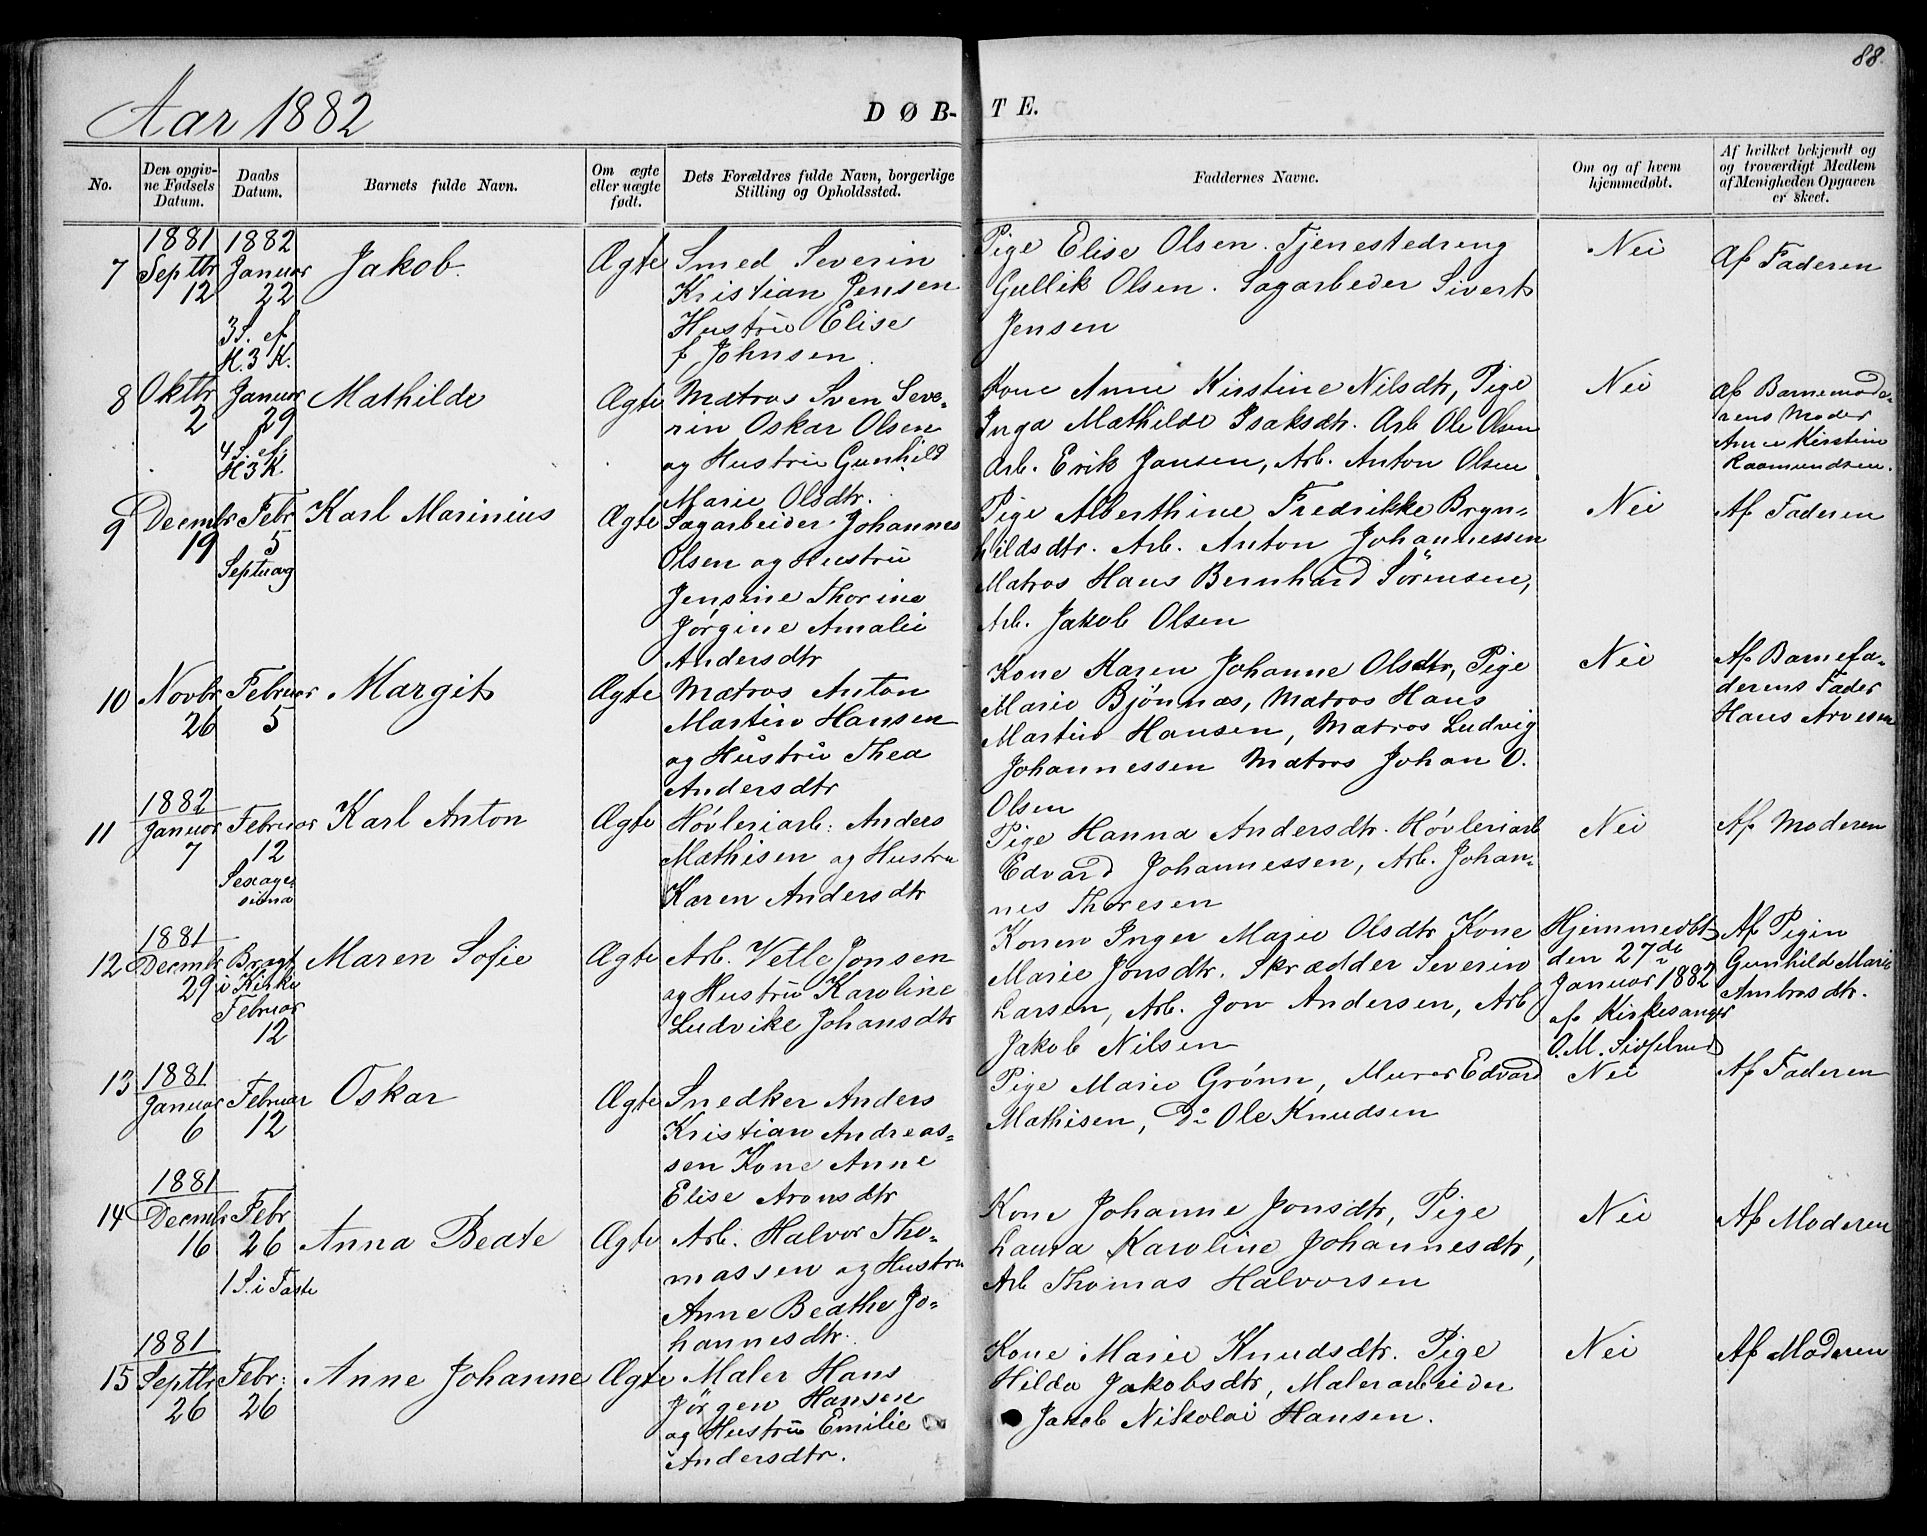 88.
Aar 1882
DØB-
TE.
No.
Den opgiv-
ne Fødsels
Datum.
Daabs
Datum.
Barnets fulde Navn.
Om ægte
eller uægte
født.
Dets Forældres fulde Navn, borgerlige
Stilling og Opholdssted.
Faddernes Navne.
Om og af hvem
hjemmedøbt.
Af hvilket bekjendt og
og troværdigt Medlem
af Menigheden Opgaven
er skeet.
7
1881
Septbr
12
1882
Januar
22
3 S. ef.
H. 3 K.
Jakob.
Ægte
Smed Severin
Kristian Jensen
Hustru Elise
f Johnsen.
Pige Elise Olsen. Tjenestedreng
Gullik Olsen. Sagarbeder Sivert
Jensen
Nei
Af Faderen
8
Oktbr
2
Januar
29
4 S. ef.
H 3 K.
Mathilde
Ægte
Matros Sven Seve-
rin Oskar Olsen
og Hustru Gunhild
Marie Olsdtr.
Kone Anne Kirstine Nilsdtr, Pige
Inga Mathilde Isaksdtr. Arb Ole Olsen
Arb. Erik Jansen, Arb. Anton Olsen
Nei
af Barnemode-
rens Moder
Anne Kirstine
Raamundsen.
9
Decmbr
19
Febr
5
Septuag
Karl Marinius
Ægte
Sagarbeider Johannes
Olsen og Hustru
Jensine Thorine
Jørgine Amalie
Andersdtr
Pige Alberthine Fredrikke Bryn-
hildsdtr. Arb. Anton Johannessen
Matros Hans Bernhard Sörensen,
Arb. Jakob Olsen
Nei
Af Faderen
10
Novbr
26
Februar
5
Margit
Ægte
Matros Anton
Martin Hansen
og Hustru Thea
Andersdtr
Kone Karen Johanne Olsdtr, Pige
Marie Bjönnæs, Matros Hans
Martin Hansen, Matros Ludvig
Johannessen Matros Johan O.
Olsen
Nei
Af Barnefa-
derens Fader
Hans Arvesen
11
1882
Januar
7
Februar
12
Sexage-
sima
Karl Anton
Ægte
Høvleriarb: Anders
Mathisen og Hustru
Karen Andersdtr
Pige Hanna Andersdtr. Høvleriarb
Edvard Johannessen, Arb. Johan-
nes Thoresen
Nei
Af Moderen
12
1881
Decmbr
29
Bragt
i Kirke
Februar
12
Maren Sofie
Ægte
Arb. Vetle Jonsen
og Hustru Karoline
Ludvike Johansdtr
Konen Inger Marie Olsdtr Kone
Marie Jonsdtr. Skrædder Severin
Larsen, Arb. Jon Andersen, Arb
Jakob Nilsen
Hjemmedbt
den 27de
Januar 1882
af Kirkesanger
O. M.
Af Pigen
Gunhild Marie
Ambrosdtr.
13
1881
Januar
6
Februar
12
Oskar
Ægte
Snedker Anders
Kristian Andreas-
sen Kone Anne
Elise Aronsdtr
Pige Marie Grønn, Murer Edvard
Mathisen, Do Ole Knudsen
Nei
Af Faderen
14
1881
Decmbr
16
Febr
26
1 S. i Faste
Anna Beate
Ægte
Arb. Halvor Tho-
massen og Hustru
Anne Beathe Jo-
hannesdtr.
Kone Johanne Jonsdtr, Pige
Laura Karoline Johannesdtr,
Arb Thomas Halvorsen
Nei
Af Moderen
15
1881
Septbr
26
Febr:
26
Anne Johanne
Ægte
Maler Hans
Jörgen Hansen
og Hustru Emilie
Andersdtr.
Kone Marie Knudsdtr. Pige
Hilda Jakobsdtr, Malerarbeider
Jakob Nikolai Hansen.
Nei
Af Moderen